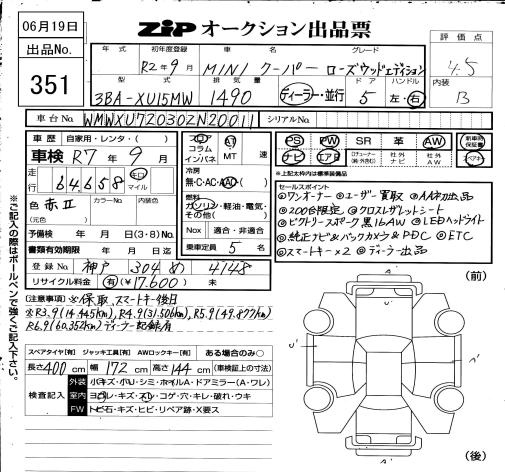 06月19日
出品No.
351
ZIP オークション出品票
年式 初年度登録 車名 グレード
R2年9月 MINI クーパー ローズウッドエディション
評価点
4.5
型式 排気量 ドア ハンドル
3BA-XU15MW 1490 ディーラー・並行 5 左・右
内装
B
車台No. WMWXU720302N20011 シリアルNo.
車歴 自家用・レンタ( )
車検 R7年9月
走行 64,658 キロ マイル
色 赤II カラーNo. 内装色
(元色)
予備検 年 月 日(3・8)No.
書類有効期限 年 月 日
登録No. 神戸 304 る 4148
リサイクル料金 有(¥17,600) 未
フロア AT
コラム
インパネ MT 速
冷房
無・C・AC・AAC
燃料
ガソリン・軽油・電気・
その他( )
Nox 適合・非適合
乗車定員 5 名
PS PW SR 革 AW
ナビ エアB 社外ナビ 社外AW
新車時保証書
※上記太枠内は標準装備品
セールスポイント
◎ワンオーナー ◎ユーザー買取 ◎AA初出品
◎200台限定 ◎クロスレザレットシート
◎ビクトリースポーク黒16AW ◎LEDヘッドライト
◎純正ナビ&バックカメラ&PDC ◎ETC
◎スマートキー×2 ◎ディーラー出品
注意事項 ※保、取、スマートキー後日
※R3.9(14,445km)、R4.9(31,506km)、R5.9(49,877km)
R6.9(60,352km)ディーラー記録有
スペアタイヤ[有] ジャッキ工具[有] AWロックキー[有] ある場合のみ○
長さ400cm 幅172cm 高さ144cm (車検証上の寸法)
検査記入
外装 小キズ・小U・シミ・ホイルA・ドアミラー(A・ワレ)
室内 ヨゴレ・キズ・スレ・コゲ・穴・キレ・破れ・ウキ
FW トビ石・キズ・ヒビ・リペア跡・X要ス
※ご記入の際はボールペンで強くご記入下さい。
(前)
(後)